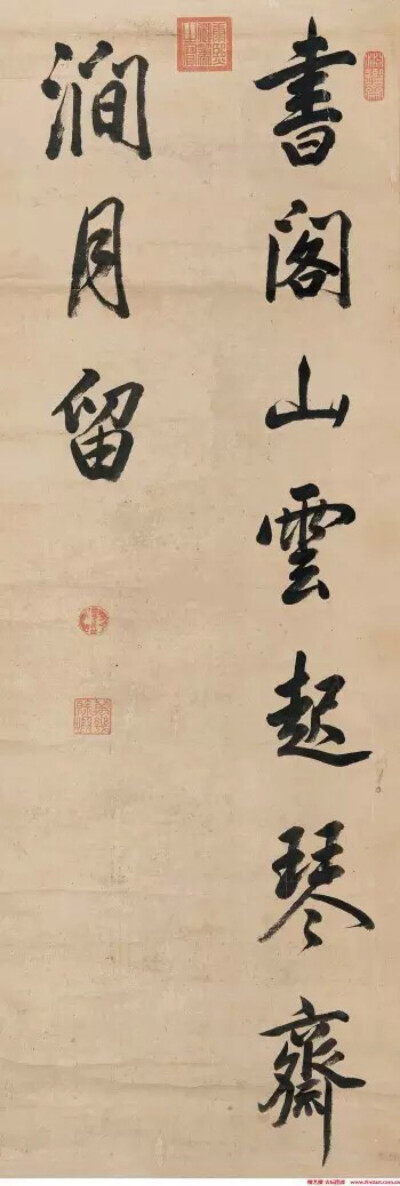 書閣山雲起琴齋
澗月留